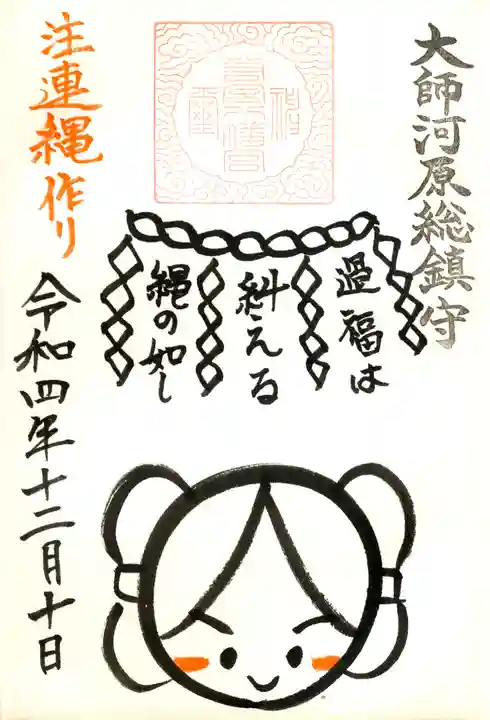 大師河原総鎮守
過福は
糾える
縄の如し
注連縄作り
令和四年十二月十日